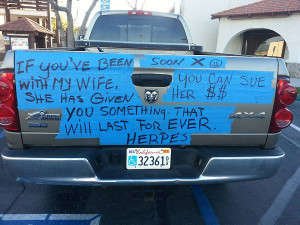 IF YOU'VE BEEN
SOON X
WITH MY WIFE,
YOU CAN SUE
SHE HAS GIVEN
HER $$
YOU SOMETHING. THAT
WILL LAST FOR EVER.
HERPES
4X4
California
32361